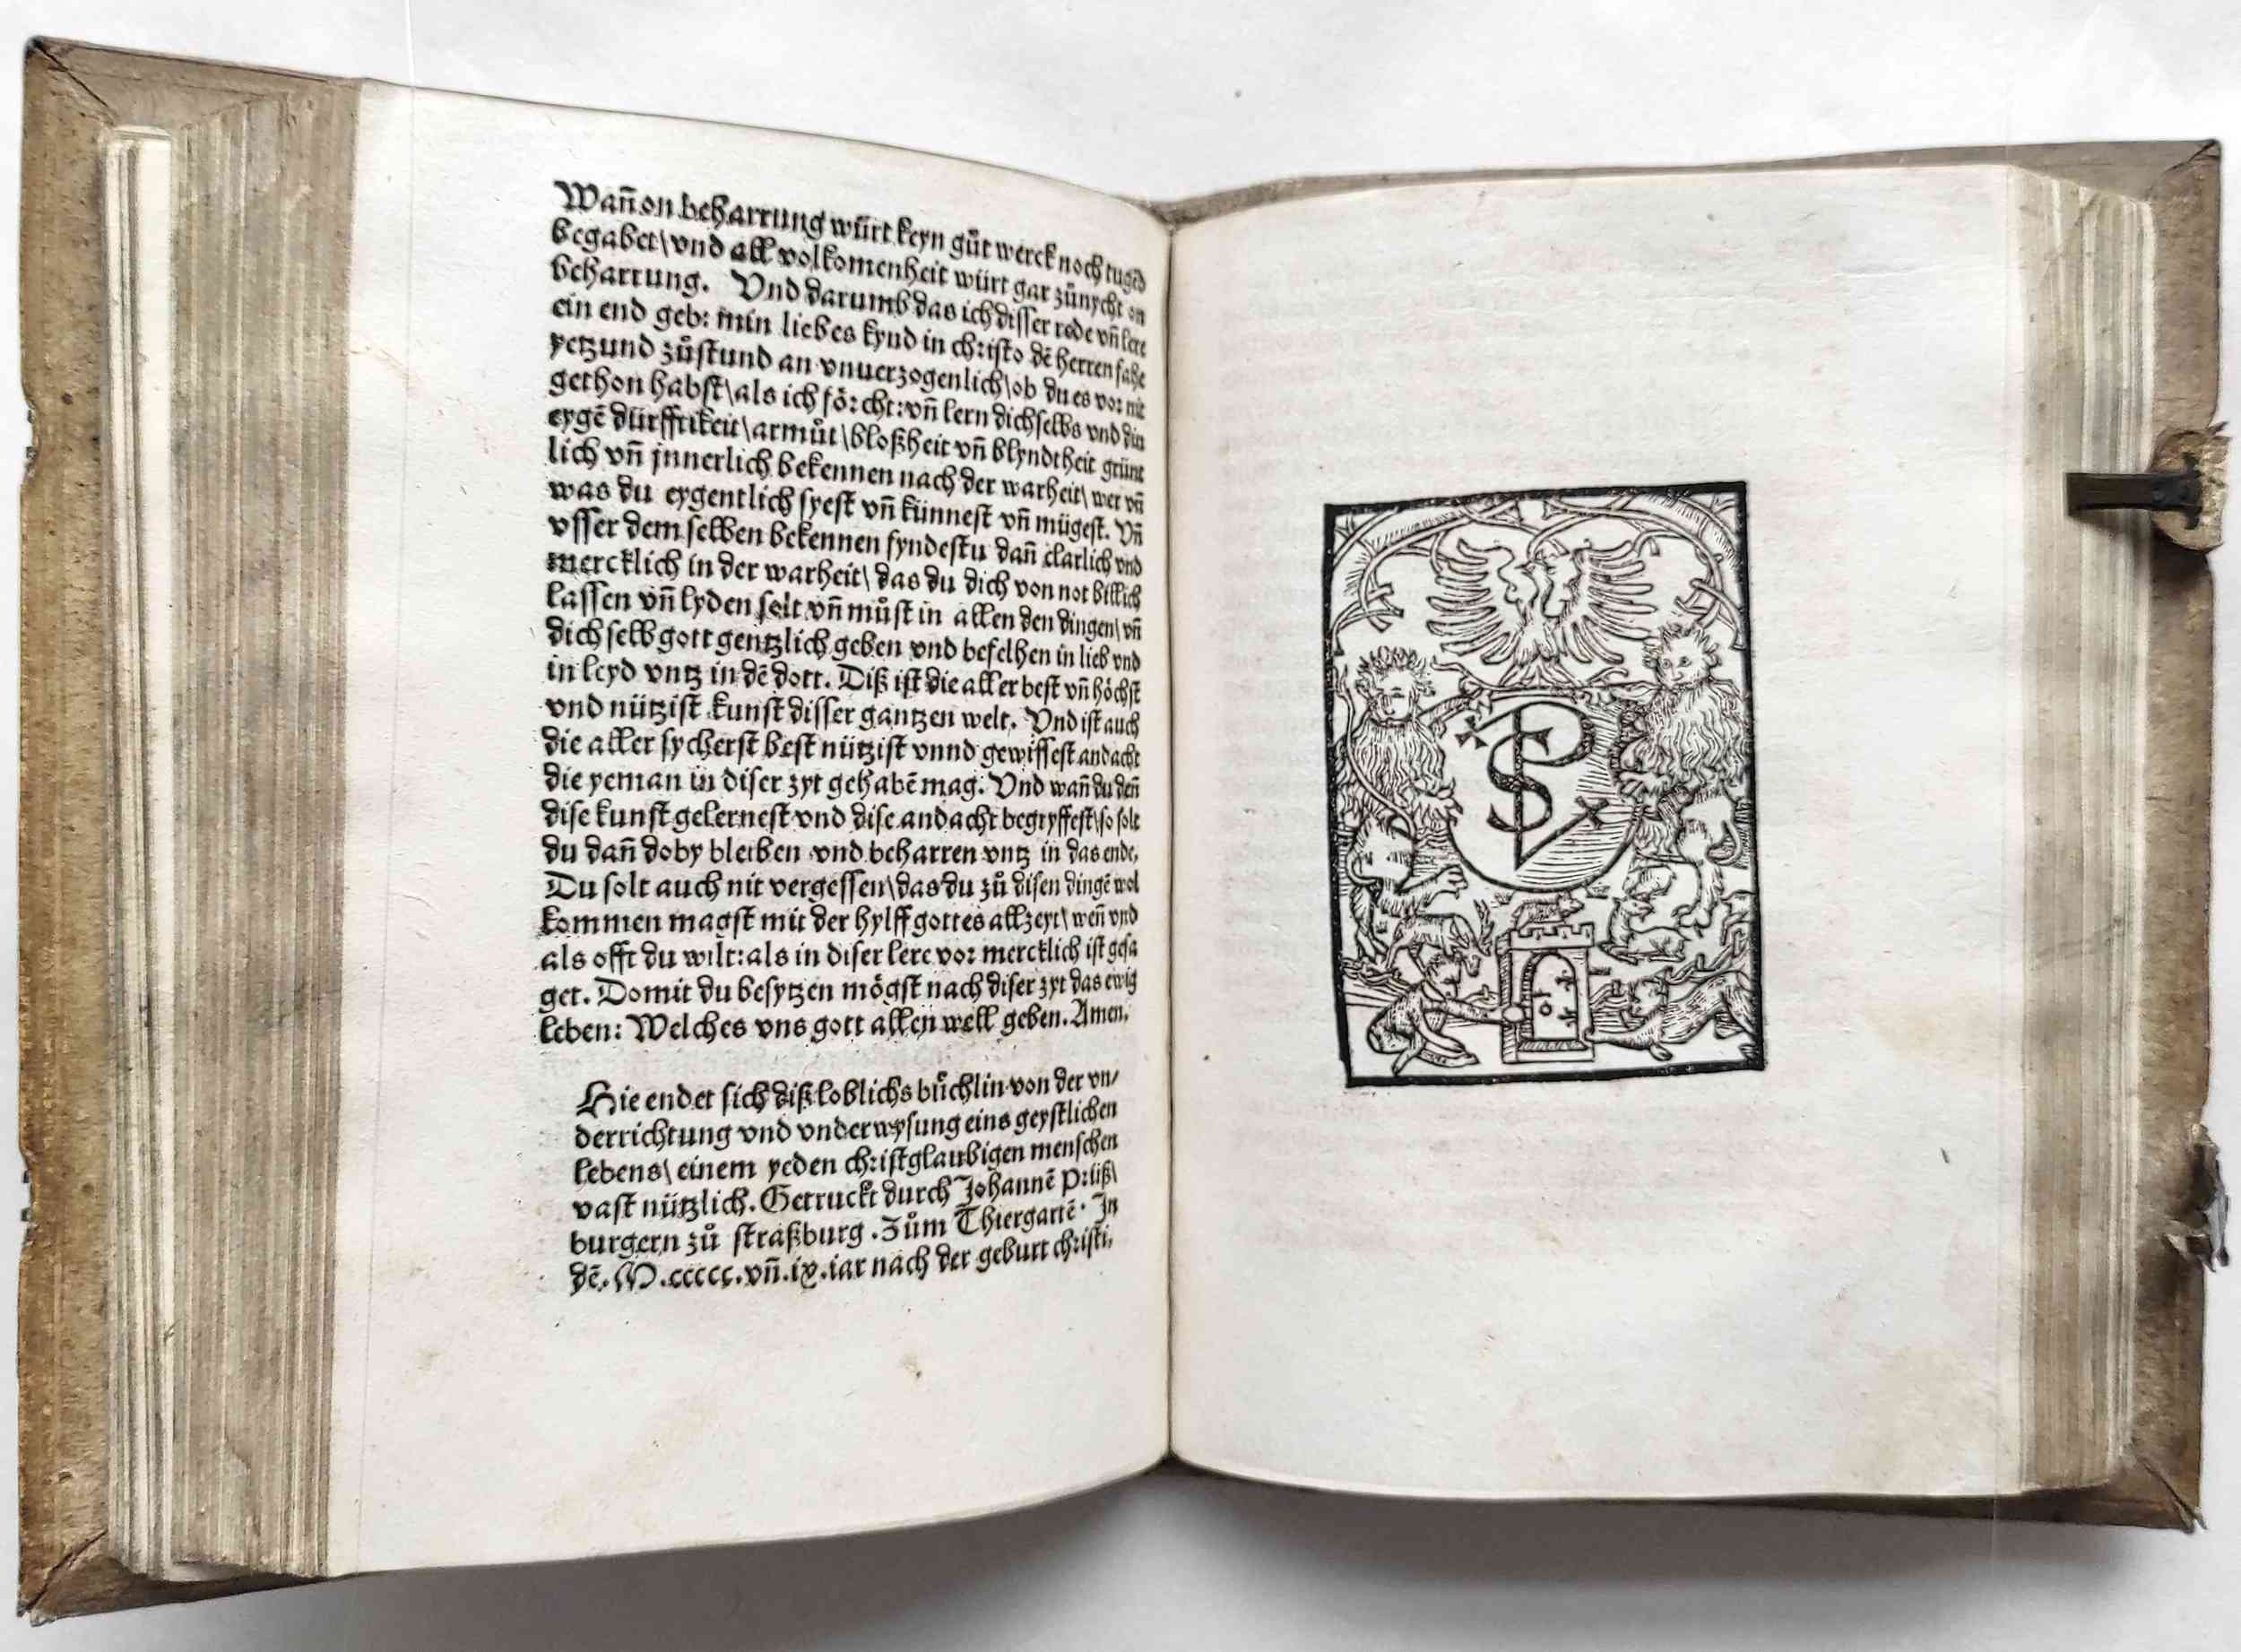 Wañ on beharrung würt keyn gůt werck noch tugẽd
begabet\vnd all volkomenheit würt gar zůnycht on
beharrung. Vnd darumb das ich disser rede vñ lere
ein end geb: min liebes kynd in christo dẽ herren fahe
yetzund zůstund an vnuerzogenlich\ob du es vor nit
gethon habst\als ich förcht: vñ lern dich selbs vnd din
eygẽ dürfftikeit\armůt\bloßheit vñ blyndtheit grünt
lich vñ jnnerlich bekennen nach der warheit\ wer vñ
was du eygentlich syest vñ künnest vñ mügest. Vñ
vsser dem selben bekennen fyndestu dañ clarlich vnd
mercklich in der warheit\ das du dich von not billich
lassen vñ lyden solt vñ můst in allen den dingen\ vñ
dich selb gott gentzlich geben vnd befelhen in lieb vnd
in leyd vntz in dẽ dott. Diß ist die aller best vñ höchst
vnd nützist kunst disser gantzen welt. Vnd ist auch
die aller sycherst best nützist vnnd gewissest andacht
die yeman in diser zyt gehabẽ mag. Vnd wañ du deñ
dise kunst gelernest vnd dise andacht begryffest\so solt
du dañ doby bleiben vnd beharren vntz in das ende,
Du solt auch nit vergessen\das du zů disen dingẽ wol
kommen magst mit der hylff gottes allzeyt\ weñ vnd
als offt du wilt: als in diser lere vor mercklich ist gesa
get. Domit du besytzen mögst nach diser zyt das ewig
leben: Welches vns gott allen well geben. Amen.
Hie endet sich diß loblichs büchlin von der vn/
derrichtung vnd vnderwysung eins geystlichen
lebens\ einem yeden christglaubigen menschen
vast nützlich. Getruckt durch Johannẽ Prüß\
burgern zů straßburg. Zům Thiergartẽ. In
dẽ. M.ccccc. vñ.ix. iar nach der geburt christi,